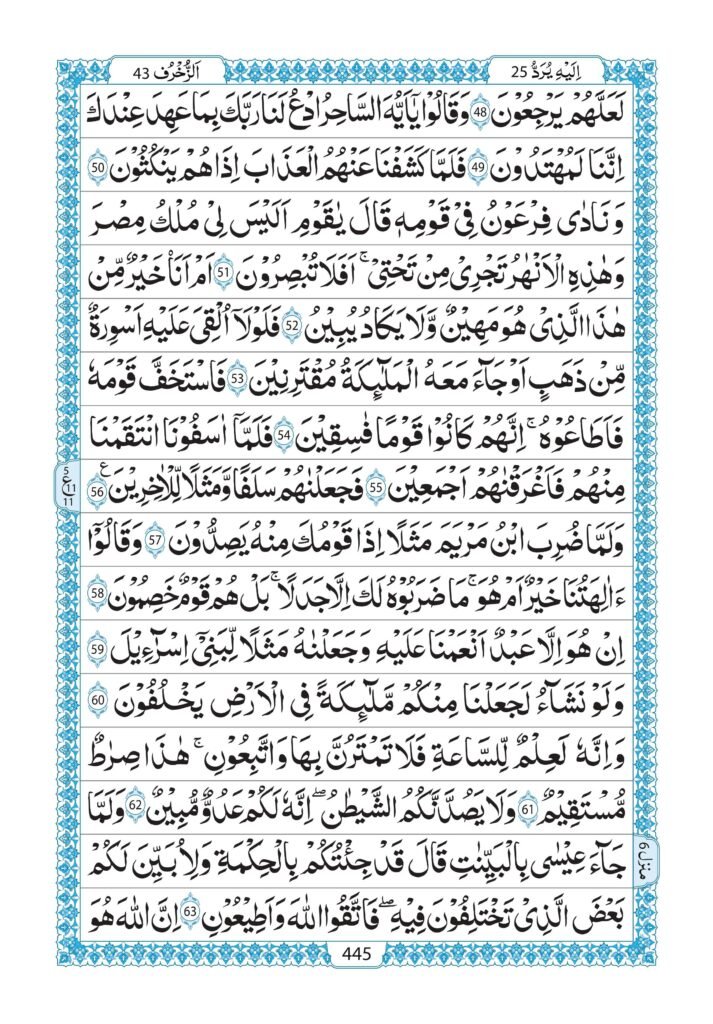 اِلَيْهِ يُرَدُّ 25
اَلزُّخْرُف 43
لَعَلَّهُمْ يَرْجِعُوْنَ 48 وَقَالُوْا يٰۤاَيُّهَ السَّاحِرُ ادْعُ لَنَا رَبَّكَ بِمَا عَهِدَ عِنْدَكَ
اِنَّنَا لَمُهْتَدُوْنَ 49 فَلَمَّا كَشَفْنَا عَنْهُمُ الْعَذَابَ اِذَا هُمْ يَنْكُثُوْنَ 50
وَنَادٰى فِرْعَوْنُ فِيْ قَوْمِهٖ قَالَ يٰقَوْمِ اَلَيْسَ لِيْ مُلْكُ مِصْرَ
وَهٰذِهِ الْاَنْهٰرُ تَجْرِيْ مِنْ تَحْتِيْ ۚ اَفَلَا تُبْصِرُوْنَ 51 اَمْ اَنَا۠ خَيْرٌ مِّنْ
هٰذَا الَّذِيْ هُوَ مَهِيْنٌ وَّلَا يَكَادُ يُبِيْنُ 52 فَلَوْلَاۤ اُلْقِيَ عَلَيْهِ اَسْوِرَةٌ
مِّنْ ذَهَبٍ اَوْ جَآءَ مَعَهُ الْمَلٰٓئِكَةُ مُقْتَرِنِيْنَ 53 فَاسْتَخَفَّ قَوْمَهٗ
فَاَطَاعُوْهُ ۚ اِنَّهُمْ كَانُوْا قَوْمًا فٰسِقِيْنَ 54 فَلَمَّاۤ اٰسَفُوْنَا انْتَقَمْنَا
مِنْهُمْ فَاَغْرَقْنٰهُمْ اَجْمَعِيْنَ 55 فَجَعَلْنٰهُمْ سَلَفًا وَّمَثَلًا لِّلْاٰخِرِيْنَ ع 56
5
ع 11
11
وَلَمَّا ضُرِبَ ابْنُ مَرْيَمَ مَثَلًا اِذَا قَوْمُكَ مِنْهُ يَصِدُّوْنَ 57 وَقَالُوْۤا
ءَاٰلِهَتُنَا خَيْرٌ اَمْ هُوَ ۚ مَا ضَرَبُوْهُ لَكَ اِلَّا جَدَلًا ۚ بَلْ هُمْ قَوْمٌ خَصِمُوْنَ 58
اِنْ هُوَ اِلَّا عَبْدٌ اَنْعَمْنَا عَلَيْهِ وَجَعَلْنٰهُ مَثَلًا لِّبَنِيْۤ اِسْرَآءِيْلَ 59
وَلَوْ نَشَآءُ لَجَعَلْنَا مِنْكُمْ مَّلٰٓئِكَةً فِي الْاَرْضِ يَخْلُفُوْنَ 60
وَاِنَّهٗ لَعِلْمٌ لِّلسَّاعَةِ فَلَا تَمْتَرُنَّ بِهَا وَاتَّبِعُوْنِ ۚ هٰذَا صِرٰطٌ
مُّسْتَقِيْمٌ 61 وَلَا يَصُدَّنَّكُمُ الشَّيْطٰنُ ۖ اِنَّهٗ لَكُمْ عَدُوٌّ مُّبِيْنٌ 62 وَلَمَّا
جَآءَ عِيْسٰى بِالْبَيِّنٰتِ قَالَ قَدْ جِئْتُكُمْ بِالْحِكْمَةِ وَلِاُبَيِّنَ لَكُمْ
منزل 6
بَعْضَ الَّذِيْ تَخْتَلِفُوْنَ فِيْهِ ۖ فَاتَّقُوا اللّٰهَ وَاَطِيْعُوْنِ 63 اِنَّ اللّٰهَ هُوَ
445